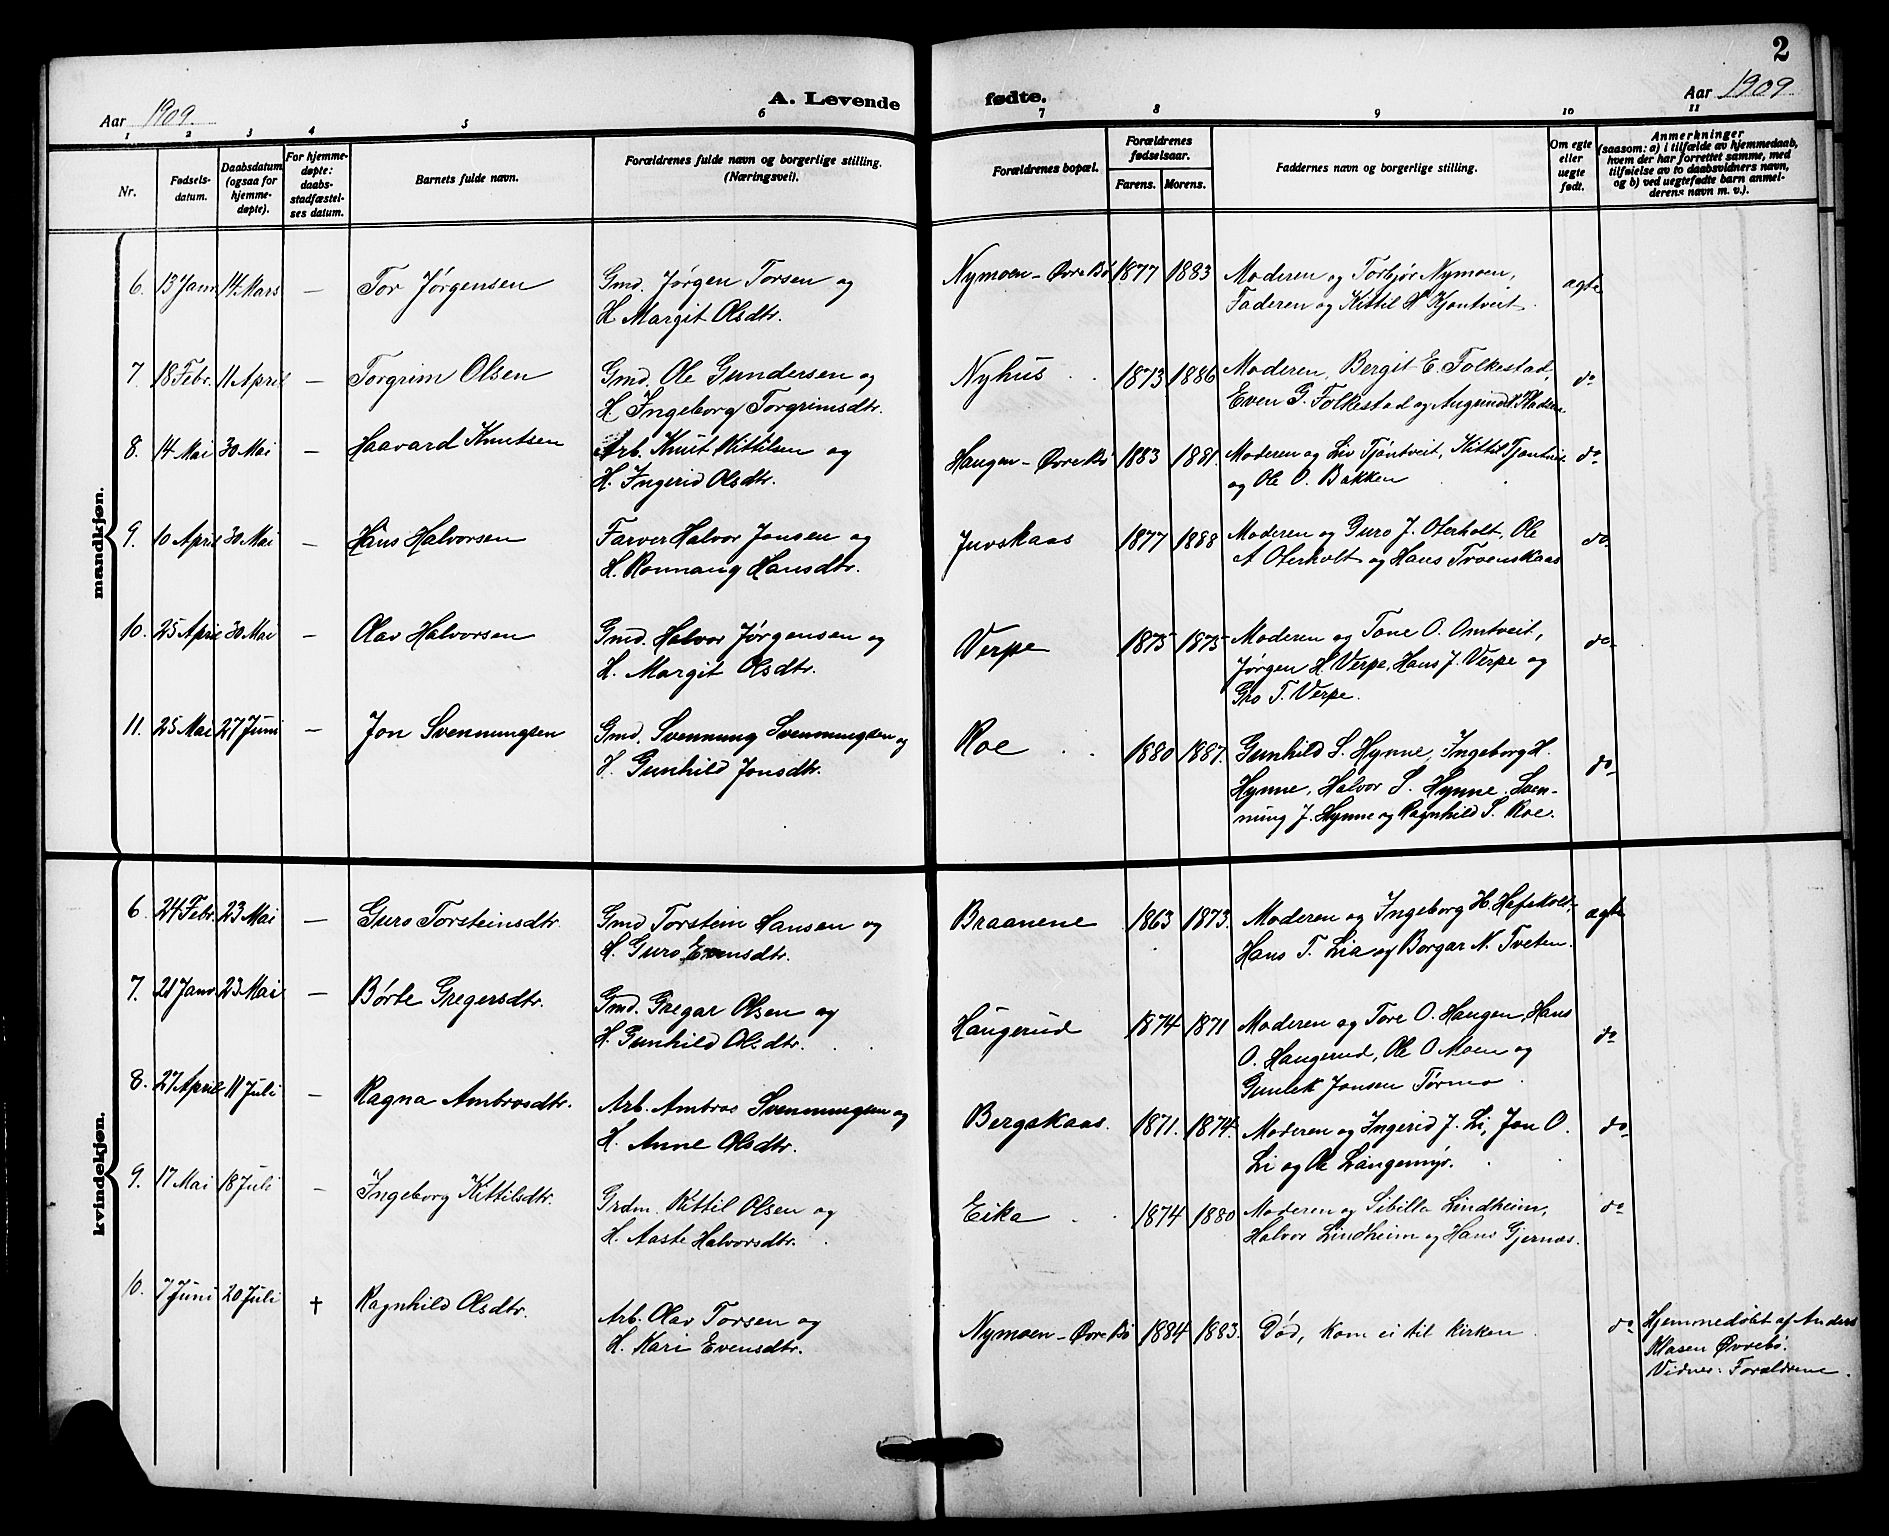 2
Aar 1909.
A. Levende fødte.
Aar 1909.
1 2 3 4 5 6 7 8 9 10 11
Nr.
Fødsels-
datum.
Daabsdatum
(ogsaa for
hjemme-
døpte).
For hjemme-
døpte:
daabs-
stadfæstel-
ses datum.
Barnets fulde navn.
Forældrenes fulde navn og borgerlige stilling.
(Næringsvei).
Forældrenes bopæl.
Forældrenes
fødselsaar.
Farens. Morens.
Faddernes navn og borgerlige stilling.
Om egte
eller
uegte
født.
Anmerkninger
(saasom: a) i tilfælde av hjemmedaab,
hvem der har forrettet samme, med
tilføielse av to daabsvidners navn,
og b) ved uegtefødte barn anmel-
derens navn m. v.).
mandkjøn.
6. 13 Janr. 14 Mars — Tor Jörgensen Gmd. Jörgen Torsen og Nymoen - Øvre Bö 1877 1883 Moderen og Torbjör Nymoen, ægte
H. Margit Olsdtr. Faderen og Kittil H. Kjöntveit.
7. 18 Febr. 11 April — Torgrim Olsen Gmd. Ole Gundersen og Nyhus 1873 1886 Moderen, Bergit E. Folkestad, do
H. Ingeborg Torgrimsdtr. Even G. Folkestad og
8. 14 Mai 30 Mai — Haavard Knutsen Arb. Knut Kittilsen og Haugen - Øvre Bö 1883 1881. Moderen og Liv Tjöntveit, Kittil Tjöntveit do
H. Ingerid Olsdtr. og Ole O. Bakken
9. 10 April 30 Mai — Hans Halvorsen Farver Halvor Jonsen og Juvskaas 1877 1888 Moderen og Guro J. Oterholt, Ole do
H. Ronnaug Hansdtr. A Oterholt og Hans
10. 25 April 30 Mai — Olav Halvorsen Gmd. Halvor Jörgensen og Verpe 1875 1875 Moderen og Tone O. Omtveit, do
H. Margit Olsdtr. Jörgen H. Verpe, Hans J. Verpe og
Gro T. Verpe.
11. 25 Mai 27 Juni — Jon Svennungsen Gmd. Svennung Svennungsen og Roe 1880 1887. Gunhild S. Hynne, Ingeborg H. do
H. Gunhild Jonsdtr. Hynne, Halvor S. Hynne, Sven-
nung J. Hynne og Ragnhild S. Roe.
kvindekjøn.
6. 24 Febr. 23 Mai — Guro Torsteinsdtr. Gmd Torstein Hansen og Braanene 1863 1873. Moderen og Ingeborg H. ægte
H. Guro Evensdtr. Hans T. Lia og Borgar N. Tveten.
7. 21 Janr. 23 Mai — Börte Gregersdtr. Gmd. Gregar Olsen og Haugerud 1874 1871 Moderen og Tore O. Haugen, Hans do
H. Gunhild Olsdtr. O. Haugerud, Ole O Moen og
Gunlek Jonsen Törmo
8. 27 April 11 Juli — Ragna Ambrosdtr. Arb. Ambros Svennungsen og Bergskaas. 1871. 1874. Moderen og Ingerid J. Li, Jon O. do
H. Anne Olsdtr. Li og Ole Langemyr.
9. 17 Mai 18 Juli — Ingeborg Kittilsdtr. Grdm. Kittil Olsen og Eika 1874 1880 Moderen og Sibille Lindheim, do
H. Aaste Halvorsdtr. Halvor Lindheim og Hans Gjernes.
10. 7 Juni 20 Juli † Ragnhild Olsdtr. Arb. Olav Torsen og Nymoen - Øvre Bö 1884 1883. Död, kom ei til kirken do Hjemmedöbt af Anders
H. Kari Evensdtr. Klasen Øvrebö.
Vidner: Forældrene.